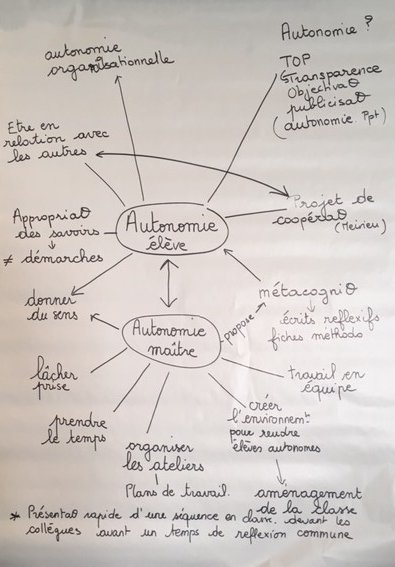 Autonomie ?
autonomie
organisationnelle
TOP
Transparence
Objectivaθ
publicisaθ
(autonomie Ppt)
Etre en
relation avec
les autres
Projet de
coopéraθ
(Meirieu)
Appropriaθ
des savoirs
≠ démarches
Autonomie
élève
donner
du sens
métacogniθ
écrits reflexifs
fiches méthodo
propose
Autonomie
maître
lâcher
prise
travail en
équipe
prendre
le temps
créer
l'environnemt
pour rendre
élèves autonomes
organiser
les ateliers
Plans de travail.
aménagement
de la classe
* Présentaθ rapide d'une séquence en classe, devant les
collègues avant un temps de reflexion commune